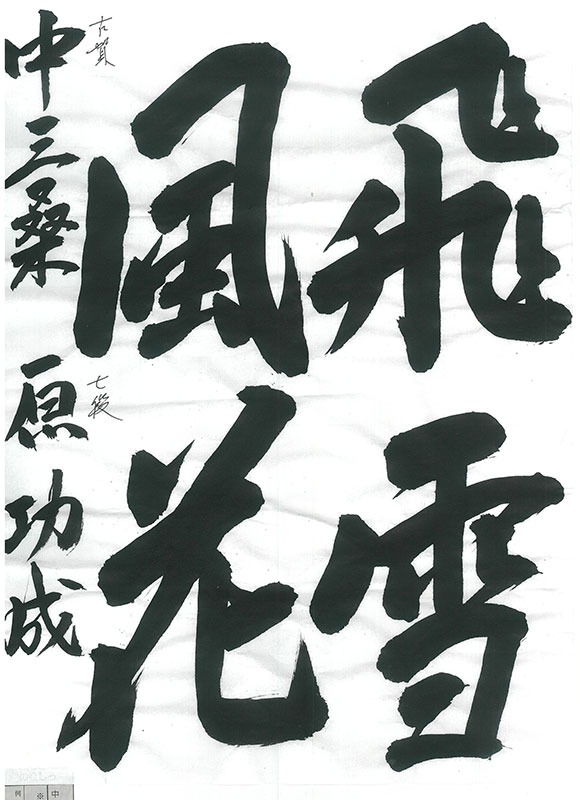 飛雪
風花
中三桑原功成
古賀
七段
例 ※ 中